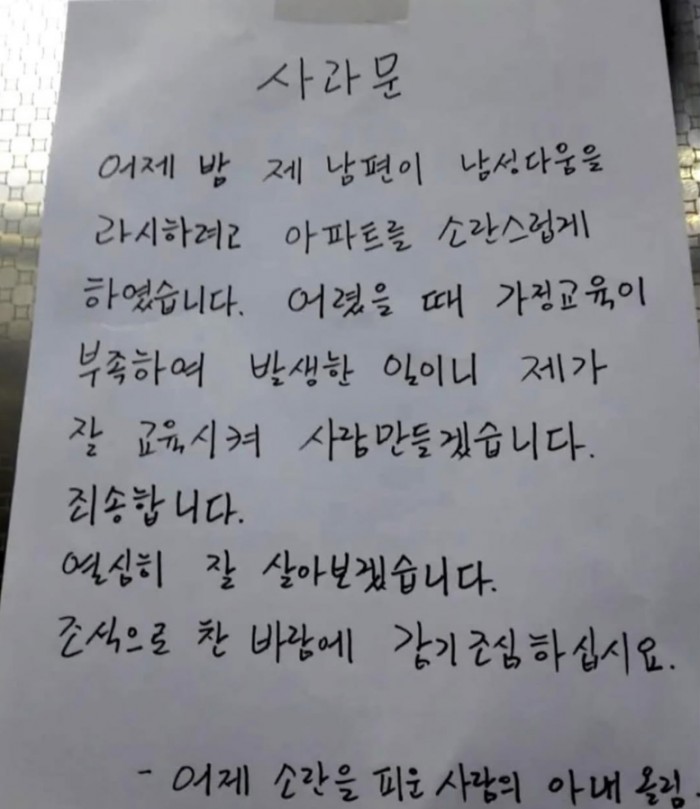 사과문
어제 밤 제 남편이 남성다움을
과시하려고 아파트를 소란스럽게
하였습니다. 어렸을 때 가정교육이
부족하여 발생한 일이니 제가
잘 교육시켜 사람만들겠습니다.
죄송합니다.
열심히 잘 살아보겠습니다.
조석으로 찬 바람에 감기조심하십시요.
- 어제 소란을 피운 사람의 아내 올림.